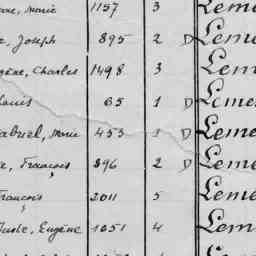 Marie 1157 3 Leme
Joseph 895 2 D Leme
Charles 1498 3 Lem
Louis 65 1 D Lemer
Gabriel, Marie 453 1 D Leme
François 896 2 D Leme
François 2011 5 Leme
Juste, Eugène 1051 4 Lem